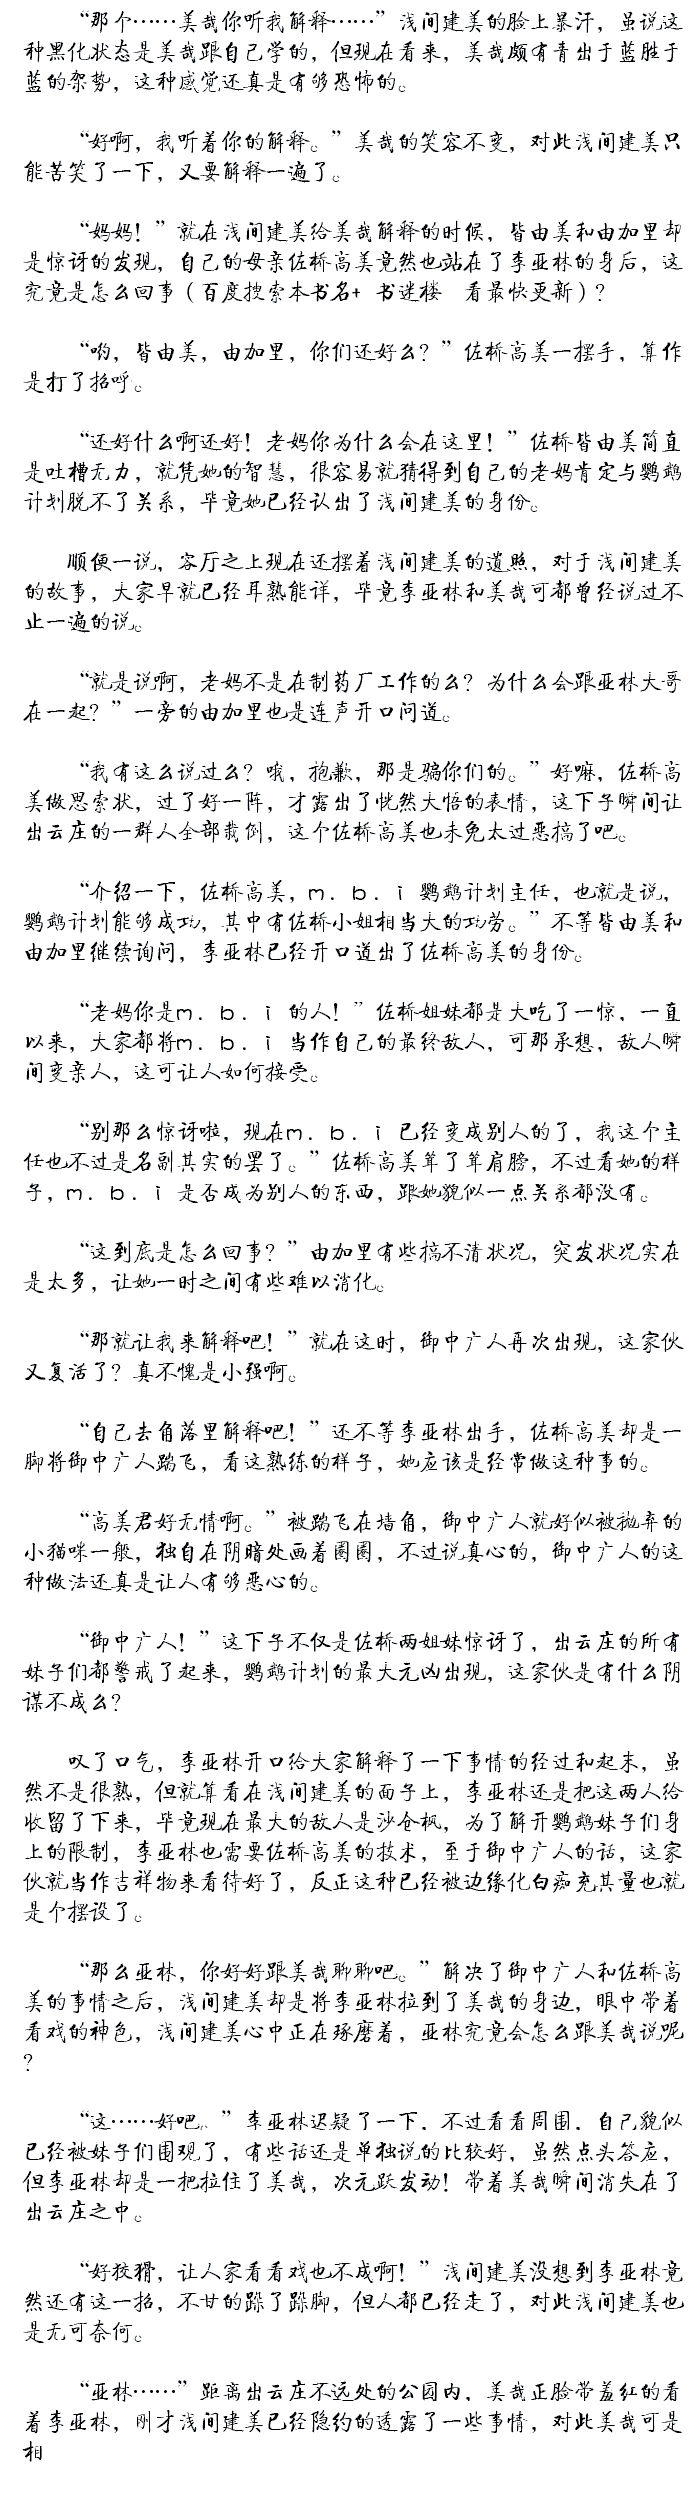 “那个……美哉你听我解释……”浅间建美的脸上暴汗，虽说这
种黑化状态是美哉跟自己学的，但现在看来，美哉颇有青出于蓝胜于
蓝的架势，这种感觉还真是有够恐怖的。
“好啊，我听着你的解释。”美哉的笑容不变，对此浅间建美只
能苦笑了一下，又要解释一遍了。
“妈妈！”就在浅间建美给美哉解释的时候，皆由美和由加里却
是惊讶的发现，自己的母亲佐桥高美竟然也站在了李亚林的身后，这
究竟是怎么回事（百度搜索本书名+ 书迷楼 看最快更新）？
“哟，皆由美，由加里，你们还好么？”佐桥高美一摆手，算作
是打了招呼。
“还好什么啊还好！老妈你为什么会在这里！”佐桥皆由美简直
是吐槽无力，就凭她的智慧，很容易就猜得到自己的老妈肯定与鹡鸰
计划脱不了关系，毕竟她已经认出了浅间建美的身份。
顺便一说，客厅之上现在还摆着浅间建美的遗照，对于浅间建美
的故事，大家早就已经耳熟能详，毕竟李亚林和美哉可都曾经说过不
止一遍的说。
“就是说啊，老妈不是在制药厂工作的么？为什么会跟亚林大哥
在一起？”一旁的由加里也是连声开口问道。
“我有这么说过么？哦，抱歉，那是骗你们的。”好嘛，佐桥高
美做思索状，过了好一阵，才露出了恍然大悟的表情，这下子瞬间让
出云庄的一群人全部栽倒，这个佐桥高美也未免太过恶搞了吧。
“介绍一下，佐桥高美，m．b．i 鹡鸰计划主任，也就是说，
鹡鸰计划能够成功，其中有佐桥小姐相当大的功劳。”不等皆由美和
由加里继续询问，李亚林已经开口道出了佐桥高美的身份。
“老妈你是m．b．i 的人！”佐桥姐妹都是大吃了一惊，一直
以来，大家都将m．b．i 当作自己的最终敌人，可那承想，敌人瞬
间变亲人，这可让人如何接受。
“别那么惊讶啦，现在m．b．i 已经变成别人的了，我这个主
任也不过是名副其实的罢了。”佐桥高美耸了耸肩膀，不过看她的样
子，m．b．i 是否成为别人的东西，跟她貌似一点关系都没有。
“这到底是怎么回事？”由加里有些搞不清状况，突发状况实在
是太多，让她一时之间有些难以消化。
“那就让我来解释吧！”就在这时，御中广人再次出现，这家伙
又复活了？真不愧是小强啊。
“自己去角落里解释吧！”还不等李亚林出手，佐桥高美却是一
脚将御中广人踹飞，看这熟练的样子，她应该是经常做这种事的。
“高美君好无情啊。”被踹飞在墙角，御中广人就好似被抛弃的
小猫咪一般，独自在阴暗处画着圈圈，不过说真心的，御中广人的这
种做法还真是让人有够恶心的。
“御中广人！”这下子不仅是佐桥两姐妹惊讶了，出云庄的所有
妹子们都警戒了起来，鹡鸰计划的最大元凶出现，这家伙是有什么阴
谋不成么？
叹了口气，李亚林开口给大家解释了一下事情的经过和起末，虽
然不是很熟，但就算看在浅间建美的面子上，李亚林还是把这两人给
收留了下来，毕竟现在最大的敌人是沙仓枫，为了解开鹡鸰妹子们身
上的限制，李亚林也需要佐桥高美的技术，至于御中广人的话，这家
伙就当作吉祥物来看待好了，反正这种已经被边缘化白痴充其量也就
是个摆设了。
“那么亚林，你好好跟美哉聊聊吧。”解决了御中广人和佐桥高
美的事情之后，浅间建美却是将李亚林拉到了美哉的身边，眼中带着
看戏的神色，浅间建美心中正在琢磨着，亚林究竟会怎么跟美哉说呢
？
“这……好吧。”李亚林迟疑了一下，不过看看周围，自己貌似
已经被妹子们围观了，有些话还是单独说的比较好，虽然点头答应，
但李亚林却是一把拉住了美哉，次元跃发动！带着美哉瞬间消失在了
出云庄之中。
“好狡猾，让人家看看戏也不成啊！”浅间建美没想到李亚林竟
然还有这一招，不甘的跺了跺脚，但人都已经走了，对此浅间建美也
是无可奈何。
“亚林……”距离出云庄不远处的公园内，美哉正脸带羞红的看
着李亚林，刚才浅间建美已经隐约的透露了一些事情，对此美哉可是
相